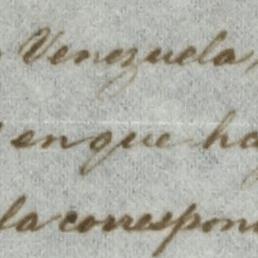 Venezuela,
en que ha
la correspon